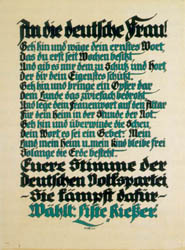 An die deutsche Frau!
Geh hin und wäge dein ernstes Wort,
Das du erst seit Wochen besitzt,
Und gib es nur dem zu Schutz und Hort
Der dir dein Eigenstes schützt.
Geh hin und bringe ein Opfer dar
Dem Lande das zwiefach bedroht
Und lege dein Frauenwort auf den Altar
Für dein Heim in der Stunde der Not.
Geh hin und überwinde die Scheu,
Dein Wort es sei ein Gebet: Mein
Land mein Heim u. mein Kind bleibe frei
Solange die Erde besteht.
Euere Stimme der
deutschen Volkspartei
Sie kämpft dafür
Wählt Liste Rießer.